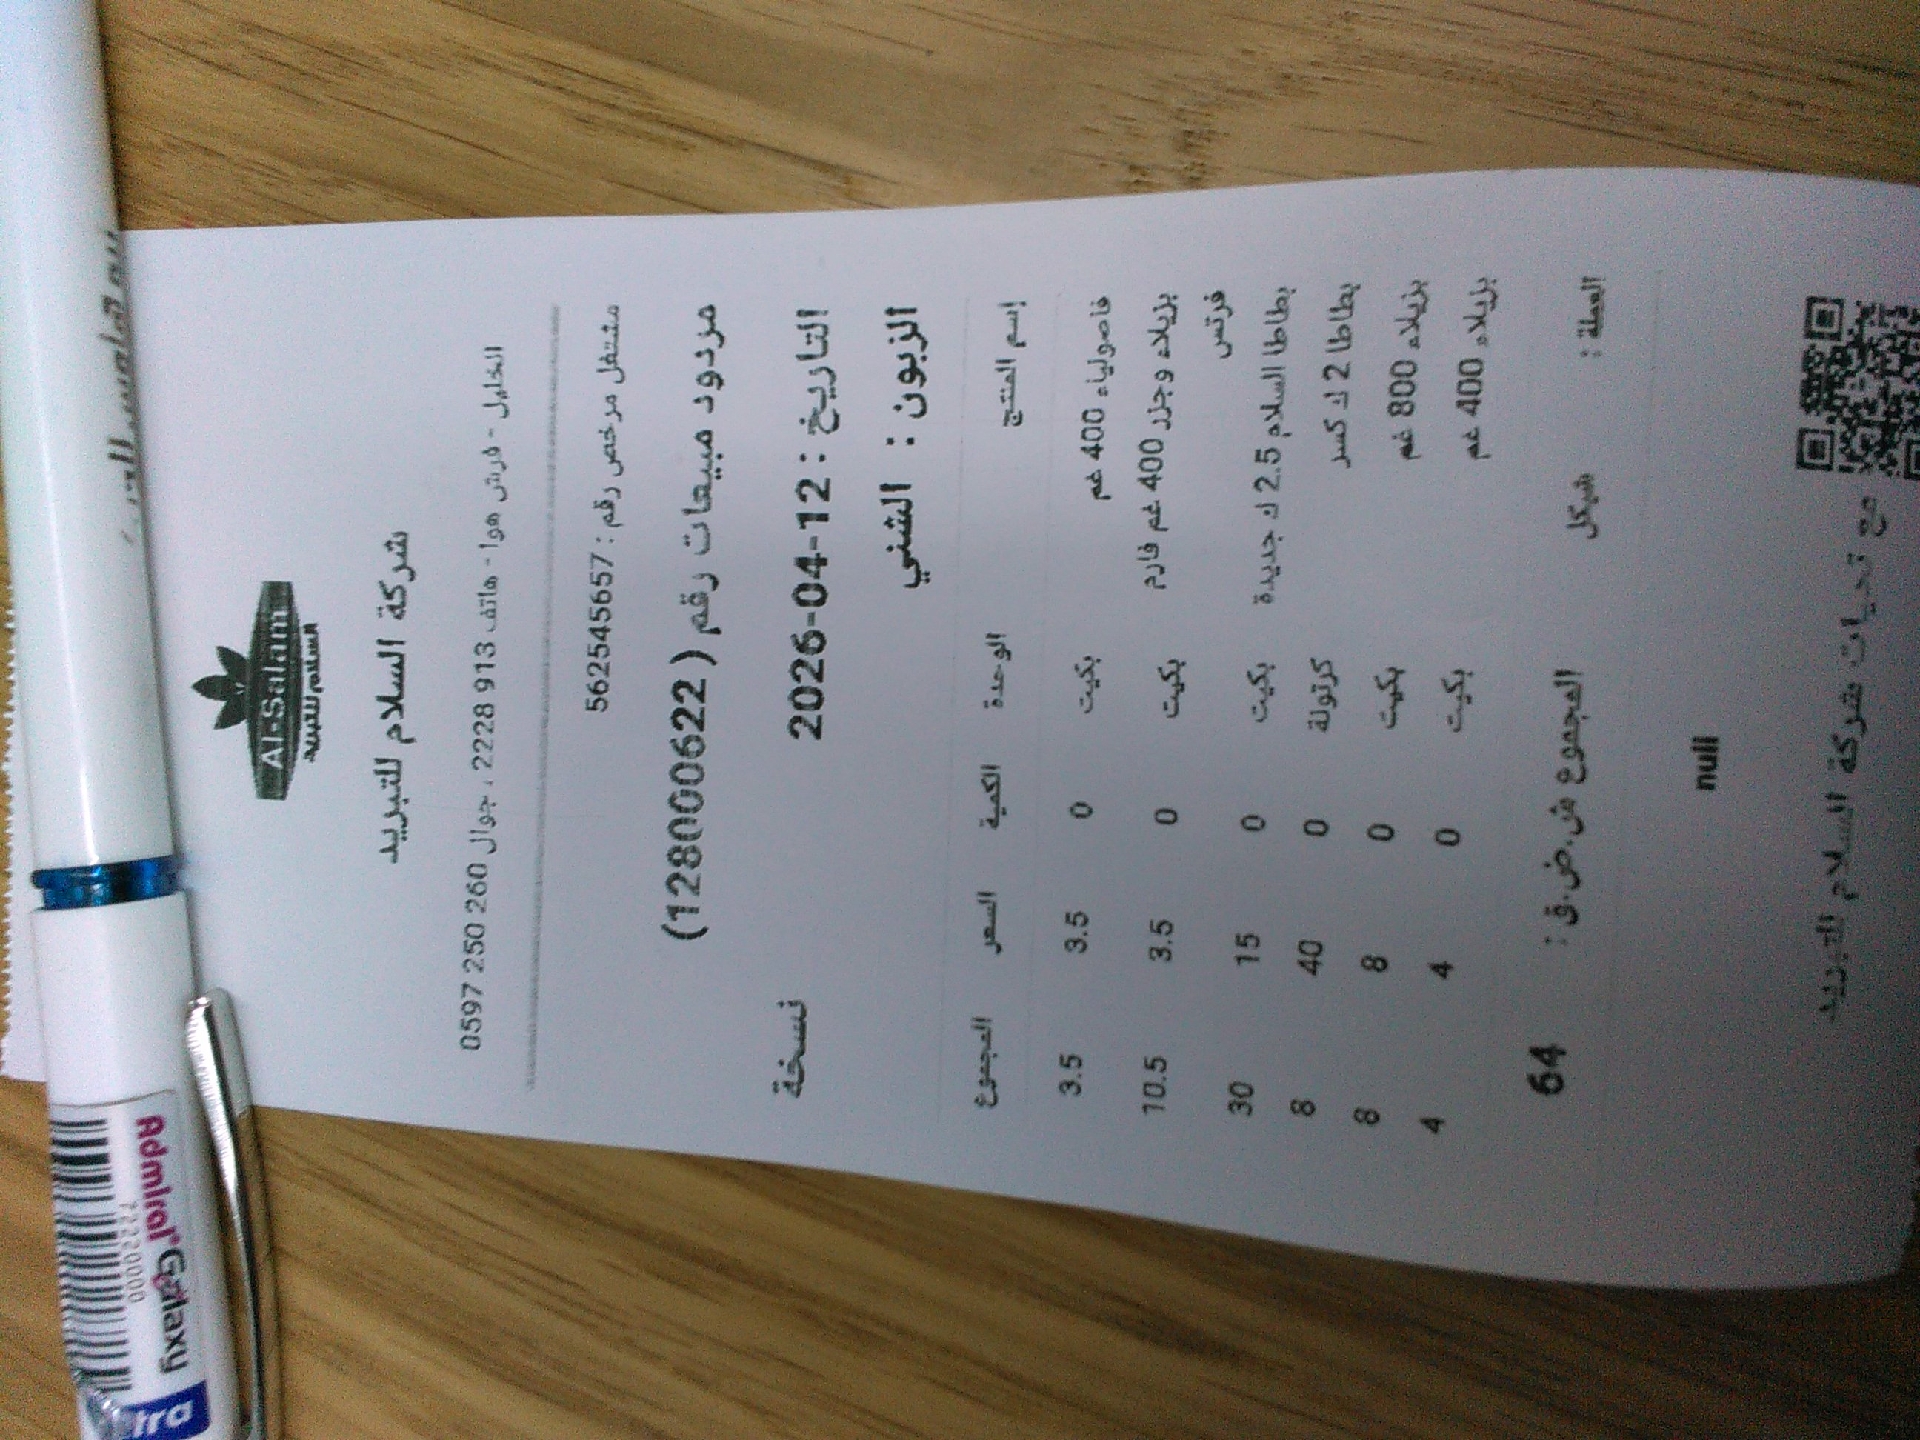 Al-Salam
السلام للتبريد
شركة السلام للتبريد
الخليل - فرش هوا - هاتف 913 2228 ، جوال 260 250 0597
مشتغل مرخص رقم : 562545657
مردود مبيعات رقم ( 12800062​2)
التاريخ : 12-04-2026 نسخة
الزبون : الشني
إسم المنتج الوحدة الكمية السعر المجموع
فاصولياء 400 غم بكيت 0 3.5 3.5
بزيلاء وجزر 400 غم فارم بكيت 0 3.5 10.5
فرتس
بطاطا السلام 2.5 ك جديدة بكيت 0 15 30
بطاطا 2 ك كسر كرتونة 0 40 8
بزيلاء 800 غم بكيت 0 8 8
بزيلاء 400 غم بكيت 0 4 4
المجموع ش.ض.ق : 64
العملة : شيكل
null
مع تحيات شركة السلام للتبريد
Admiral Galaxy
72220000